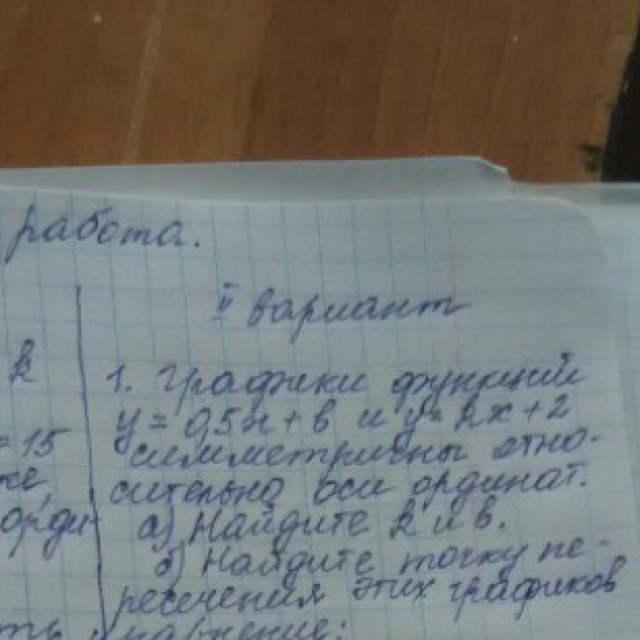 работа.
II вариант
k
1. Графики функций
y = 0,5x + b и y = kx + 2
= 15
симметричны отно-
сительно оси ординат.
орди-
а) Найдите k и b.
б) Найдите точку пе-
ресечения этих графиков